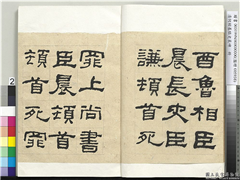 酉魯相臣
晨長史臣
謙頓首死
罪上尚書
臣晨頓首
頓首死罪